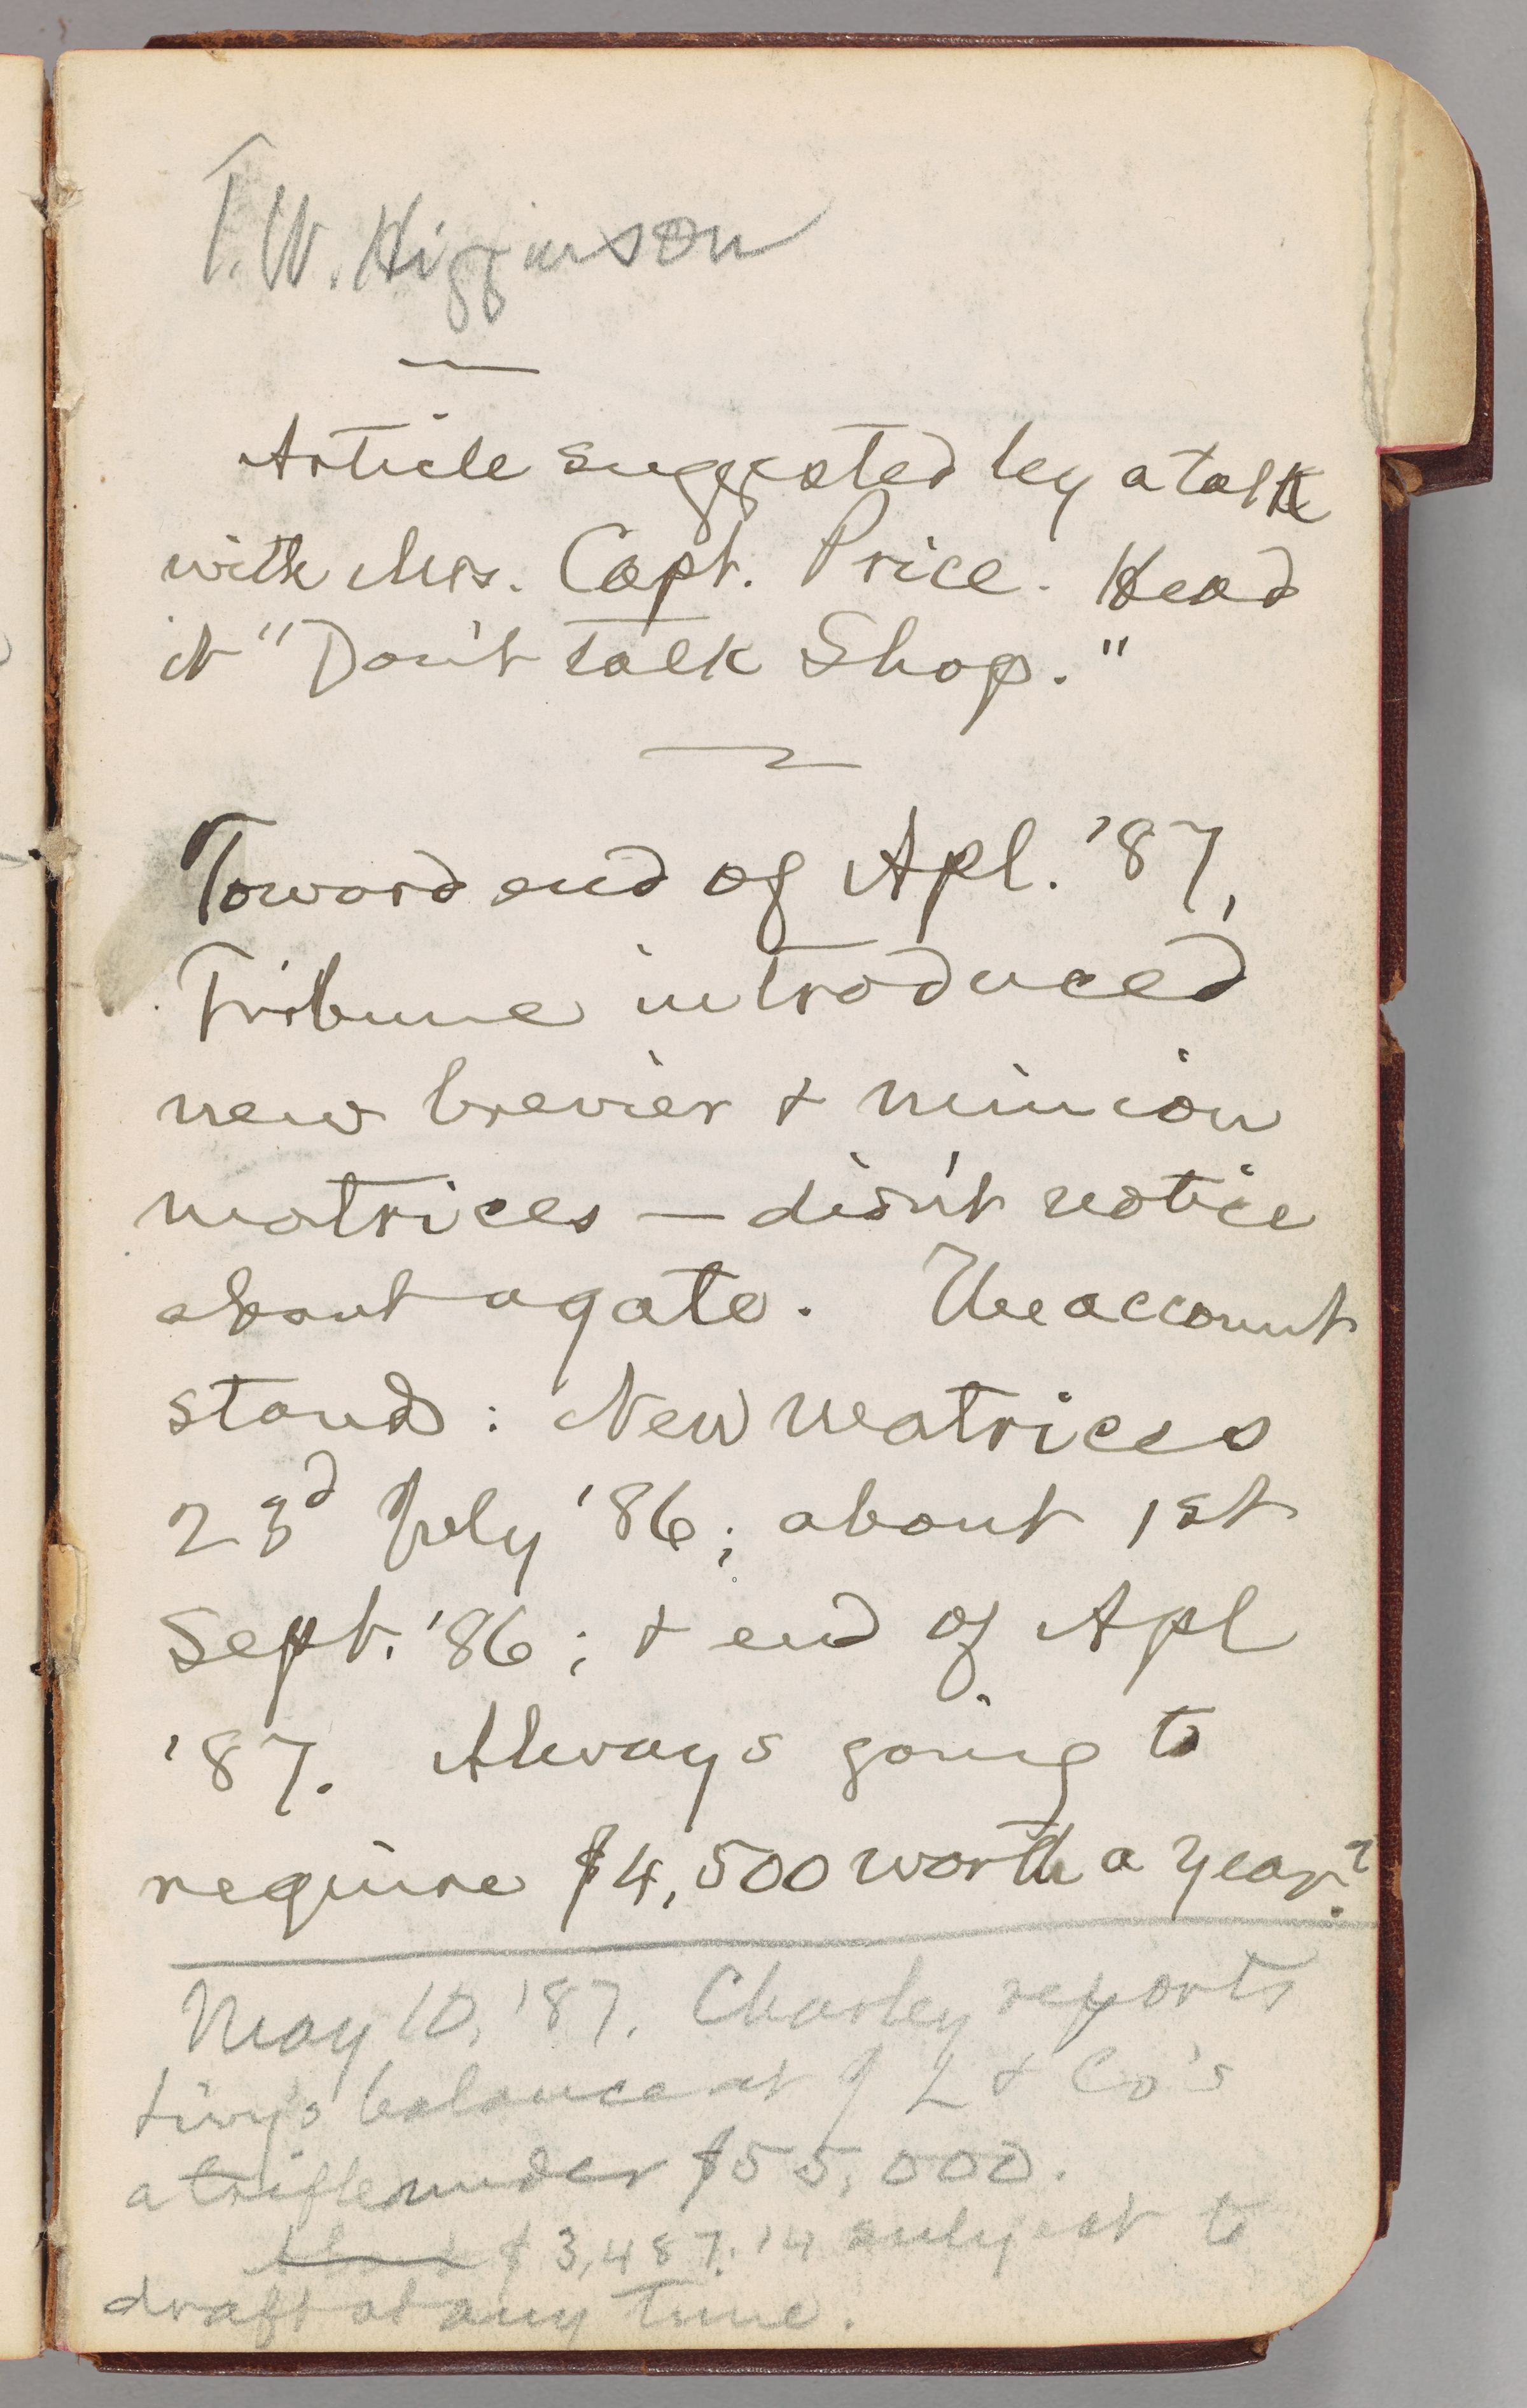 T.W. Higginson
Article suggested by a talk
with Mrs. Capt. Price. Head
it "Don't talk Shop."
Toward end of Apl. '87,
Tribune introduced
new brevier & minion
matrices — didn't notice
about agate. The account
stands: New matrices
23d July '86; about 1st
Sept. '86; & end of Apl
'87. Always going to
require $4,500 worth a year?
May 10, '87. Charley reports
Livy's balance at J L & Co's
a trifle under $55,000.
About $3,487.14 subject to
draft at any time.